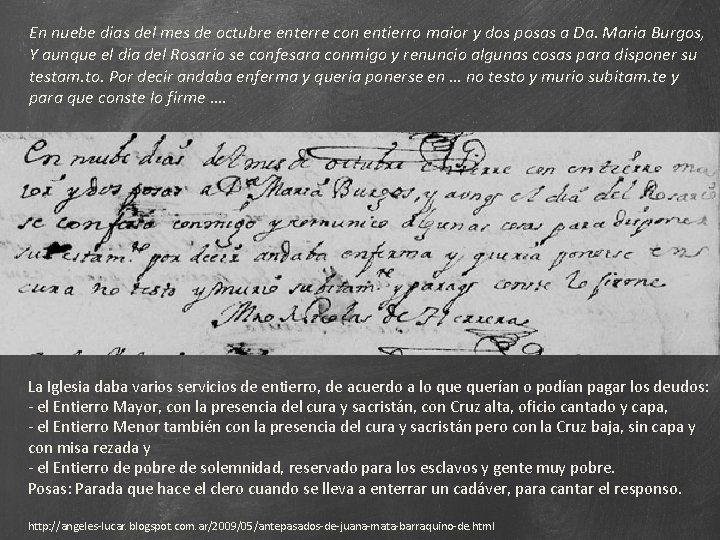 En nuebe dias del mes de octubre enterre con entierro maior y dos posas a Da. Maria Burgos,
Y aunque el dia del Rosario se confesara conmigo y renuncio algunas cosas para disponer su
testam.to. Por decir andaba enferma y queria ponerse en ... no testo y murio subitam.te y
para que conste lo firme ....
En nuebe dias del mes de octubre enterre con entierro ma
ior y dos posas a Da Maria Burgos, y aunqe el dia del Rosario
se confesó conmigo y comunico algunas cosas para disponer
su testam.to por decir andaba enferma y queria ponerse en
cura no testo y murio subitam.te y paraqe conste lo firme
Mro Nicolas de Herrera
La Iglesia daba varios servicios de entierro, de acuerdo a lo que querían o podían pagar los deudos:
- el Entierro Mayor, con la presencia del cura y sacristán, con Cruz alta, oficio cantado y capa,
- el Entierro Menor también con la presencia del cura y sacristán pero con la Cruz baja, sin capa y
con misa rezada y
- el Entierro de pobre de solemnidad, reservado para los esclavos y gente muy pobre.
Posas: Parada que hace el clero cuando se lleva a enterrar un cadáver, para cantar el responso.
http://angeles-lucar.blogspot.com.ar/2009/05/antepasados-de-juana-mata-barraquino-de.html